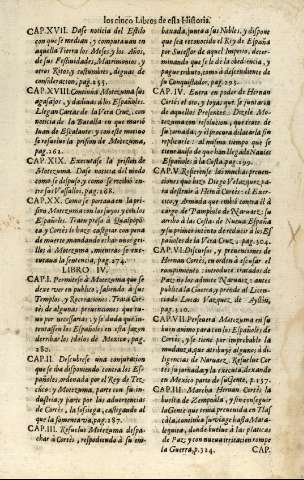 los cinco Libros de esta Historia.
CAP. XVII. Dase noticia del Estilo
con que se median, y computavan en
aquella Tierra los Meses, y los Años,
de sus Festividades, Matrimonios, y
otros Ritos, y costumbres, dignas de
consideracion, pag. 255.
CAP. XVIII. Continùa Motezuma sus
agasajos, y dadivas à los Españoles.
Llegan Cartas de la Vera-Cruz, con
noticia de la Batalla en que muriò
Juan de Escalante; y con este motivo
se resuelve la prision de Motezuma,
pag. 262.
CAP. XIX. Executase la prision de
Motezuma. Dase noticia del modo
como se dispuso, y como se recibiò en-
tre sus Vassallos, pag. 268.
CAP. XX. Como se portava en la pri-
sion Motezuma con los suyos, y con los
Españoles. Traen preso à Qualpopo-
ca, y Cortès le haze castigar con pena
de muerte, mandando echar unos gri-
llos à Motezuma, mientras se exe-
cutava la sentencia, pag. 274.
LIBRO IV.
CAP. I. Permitese à Motezuma que se
dexe ver en publico, saliendo à sus
Templos, y Recreaciones. Trata Cor-
tès de algunas prevenciones que tu-
vo por necessarias; y se duda que in-
tentassen los Españoles en esta sazon
derribar los Idolos de Mexico, pag.
280.
CAP. II. Descubrese una conjuracion
que se iba disponiendo contra los Es-
pañoles, ordenada por el Rey de Tez-
cuco: y Motezuma, parte con su in-
dustria, y parte por las advertencias
de Cortès, la sosiega, castigando al
que la fomentava, pag. 287.
CAP. III. Resuelve Motezuma despa-
char à Cortès, respondiendo à su em-
baxada, junta à sus Nobles, y dispone
que sea reconocido el Rey de España
por Sucessor de aquel Imperio, deter-
minando que se le dè la obediencia, y
pague tributo, como à descendiente de
su Conquistador, pag. 293.
CAP. IV. Entra en poder de Hernan
Cortès el oro, y joyas que se juntaron
de aquellos Presentes. Dizele Mo-
tezuma con resolucion, que trate de
su jornada; y èl procura dilatarla sin
replicarle: al mismo tiempo que se
tiene aviso de que han llegado Navios
Españoles à la Costa, pag. 299.
CAP. V. Refierense las nuevas preven-
ciones que hizo Diego Velazquez, pa-
ra destruir à Hernan Cortès: el Exer-
cito, y Armada que embiò contra èl à
cargo de Pamphilo de Narvaez: su
arribo à las Costas de Nueva España,
y su primer intento de reducir à los Es-
pañoles de la Vera-Cruz, pag. 304.
CAP. VI. Discursos, y prevenciones de
Hernan Cortès, en orden à escusar el
rompimiento: introduce tratados de
Paz; no los admite Narvaez: antes
publica la Guerra, y prende al Licen-
ciado Lucas Vazquez de Ayllòn,
pag. 310.
CAP. VII. Persevera Motezuma en su
buen animo para con los Españoles de
Cortès, y se tiene por improbable la
mudança, que atribuyen algunos à di-
ligencias de Narvaez. Resuelve Cor-
tès su jornada, y la executa, dexando
en Mexico parte de su Gente, p. 317.
CAP. VIII. Marcha Hernan Cortès la
buelta de Zempoala, y sin conseguir
la Gente que tenia prevenida en Tlas-
cala, continùa su viage hasta Mata-
lequita, donde buelve à las platicas
de Paz; y con nueva irritacion rompe
la Guerra, p. 324.
CAP.